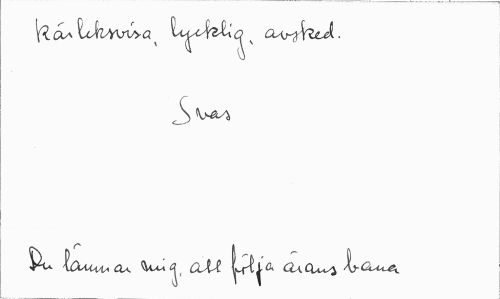 Kärleksvisa, lycklig, avsked.
Svas
Du lämnar mig, att följa ärans bana